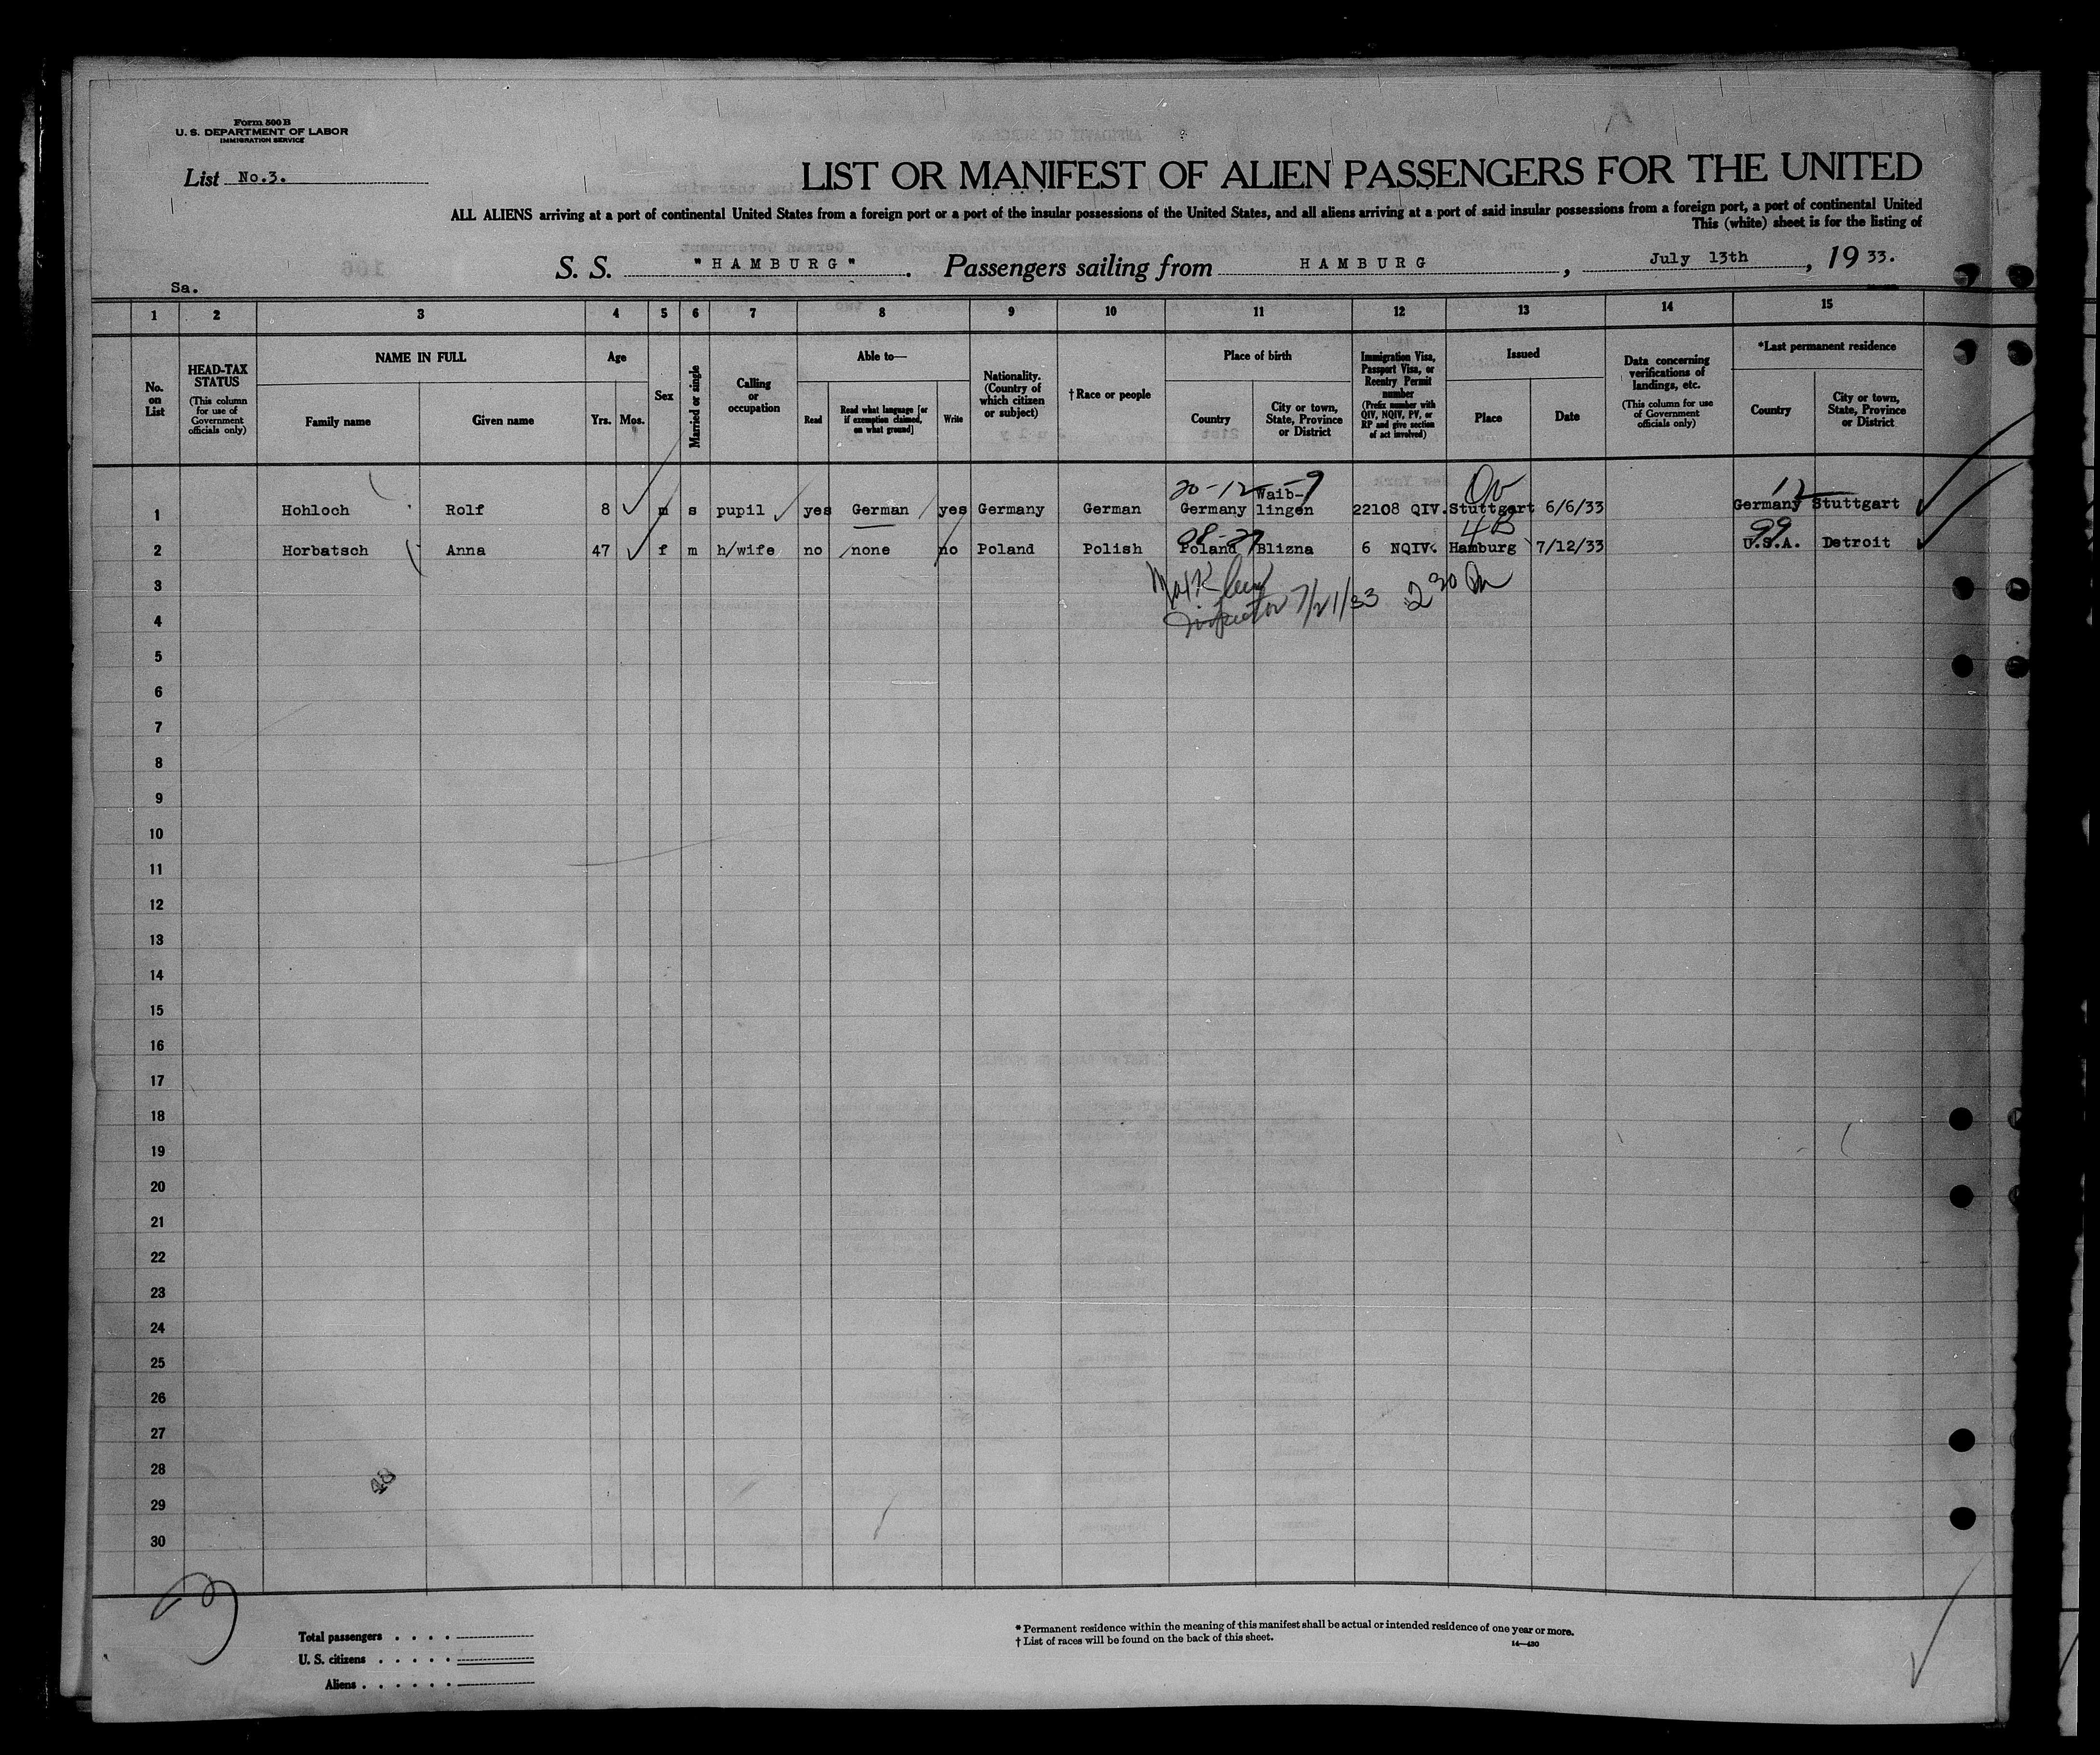 Form 500 B
U. S. DEPARTMENT OF LABOR
IMMIGRATION SERVICE
List No.3.
LIST OR MANIFEST OF ALIEN PASSENGERS FOR THE UNITED
ALL ALIENS arriving at a port of continental United States from a foreign port or a port of the insular possessions of the United States, and all aliens arriving at a port of said insular possessions from a foreign port, a port of continental United
This (white) sheet is for the listing of
S. S. "HAMBURG". Passengers sailing from HAMBURG, July 13th, 1933.
Sa.
1 2 3 4 5 6 7 8 9 10 11 12 13 14 15
No. on List
HEAD-TAX STATUS (This column for use of Government officials only)
NAME IN FULL
Family name Given name
Age
Yrs. Mos.
Sex
Married or single
Calling or occupation
Able to—
Read Read what language [or if exemption claimed, on what ground] Write
Nationality. (Country of which citizen or subject)
†Race or people
Place of birth
Country City or town, State, Province or District
Immigration Visa, Passport Visa, or Reentry Permit number (Prefix number with QIV, NQIV, PV, or RP and give section of act involved)
Issued
Place Date
Data concerning verifications of landings, etc. (This column for use of Government officials only)
*Last permanent residence
Country City or town, State, Province or District
20-12-9
QV
12
1 Hohloch Rolf 8 m s pupil yes German yes Germany German Germany Waib-lingen 22108 QIV. Stuttgart 6/6/33 Germany Stuttgart
08-27
4B
99
2 Horbatsch Anna 47 f m h/wife no none no Poland Polish Poland Blizna 6 NQIV. Hamburg 7/12/33 U.S.A. Detroit
3
Inspector 7/21/33 2 30
4
5
6
7
8
9
10
11
12
13
14
15
16
17
18
19
20
21
22
23
24
25
26
27
28
29
30
Total passengers
U. S. citizens
Aliens
* Permanent residence within the meaning of this manifest shall be actual or intended residence of one year or more.
† List of races will be found on the back of this sheet.
14—430